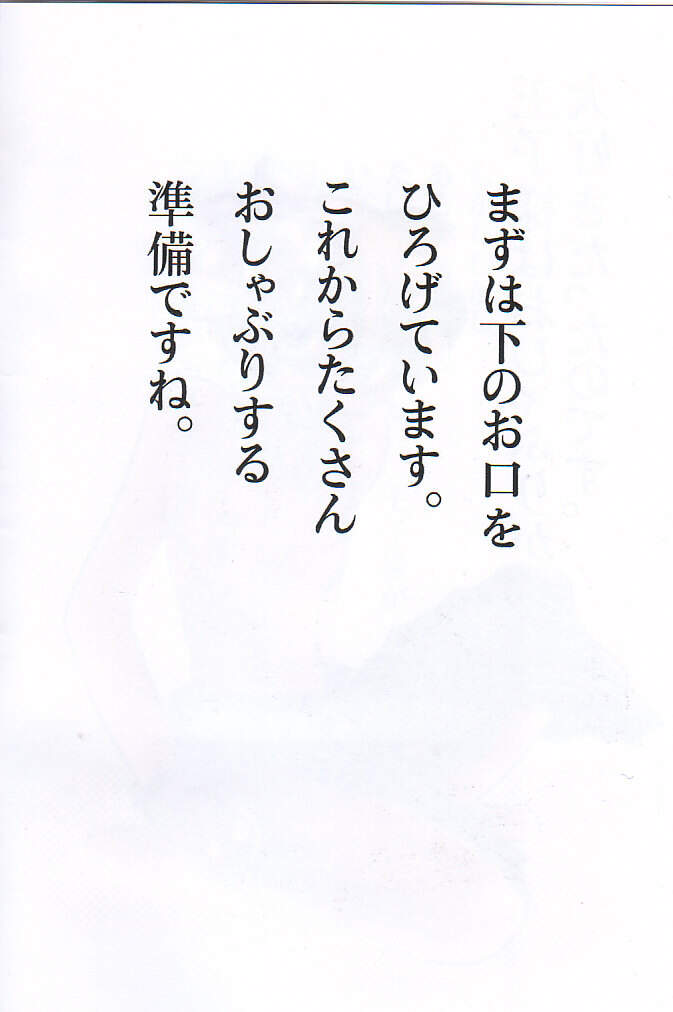 まずは下のお口を
ひろげています。
これからたくさん
おしゃぶりする
準備ですね。